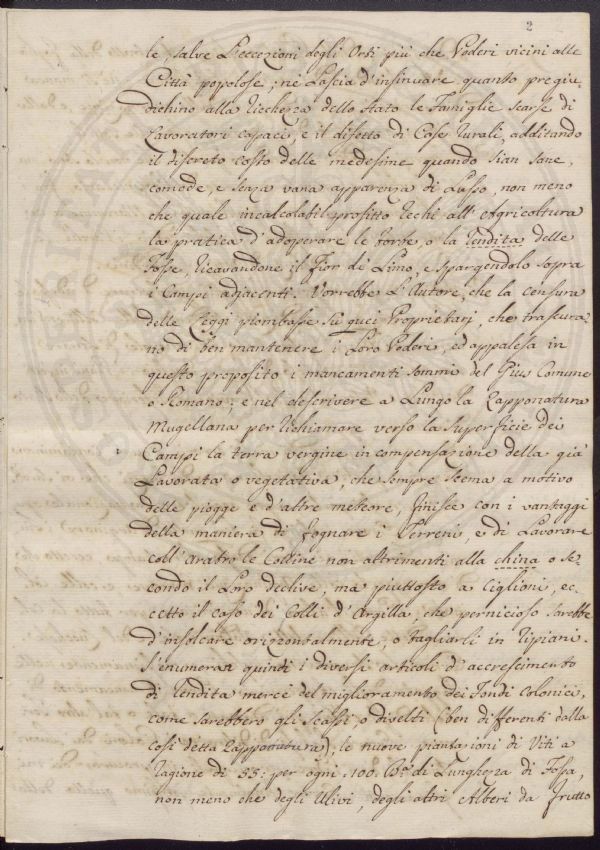 2
le, salve l'eccezioni degli Orti più che Poderi vicini alle
Città popolose; nè lascia d'insinuare quanto pregiu-
dichino alla ricchezza dello stato le famiglie scarse di
Lavoratori capaci, e il difetto di Case rurali, additando
il discreto costo delle medesime quando sian sane,
comode, e senza vana apparenza di lusso, non meno
che quale incalcolabil profitto rechi all'Agricoltura
la pratica d'adoperare le torbe, o la rendita delle
Fosse, ricavandone il fior di limo, e spargendolo sopra
i Campi adjacenti. Vorrebbe l'Autore, che la censura
delle Leggi piombasse su quei Proprietarj, che trascura-
no di ben mantenere i loro Poderi, ed appalesa in
questo proposito i mancamenti sommi del Gius Comune
o Romano; e nel descrivere a lungo la Zapponatura
Mugellana per richiamare verso la superficie dei
Campi la terra vergine in compensazione della già
lavorata o vegetativa, che sempre scema a motivo
delle piogge e d'altre meteore, finisce con i vantaggi
della maniera di fognare i Terreni, e di lavorare
coll'aratro le Colline non altrimenti alla china o se-
condo il loro declive, ma piuttosto a Ciglioni, ec-
cetto il caso dei Colli d'Argilla, che pernicioso sarebbe
d'insolcare orizzontalmente, o tagliarli in ripiani.
S'enumeran quindi i diversi articoli d'accrescimento
di rendita mercè del miglioramento dei fondi Colonici,
come sarebbero gli scassi o divelti (ben differenti dalla
così detta Zapponatura); le nuove piantazioni di Viti a
ragione di 55: per ogni 100. Bᵃ di lunghezza di Fossa,
non meno che degli Ulivi, degli altri Alberi da frutto